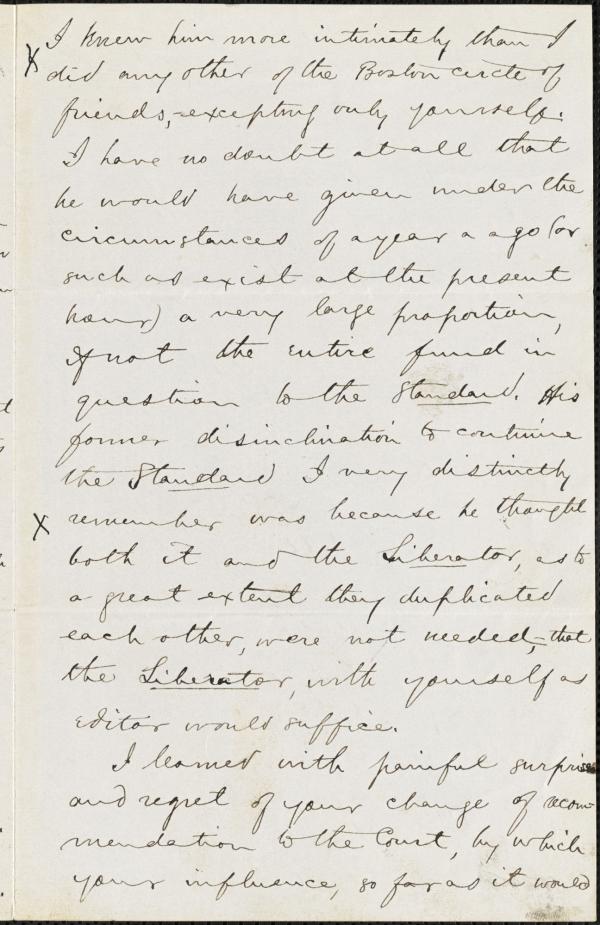 X I knew him more intimately than I
did any other of the Boston circle of
friends,—excepting only yourself.
I have no doubt at all that
he would have given under the
circumstances of a year a ago (or
such as exist at the present
hour) a very large proportion,
if not the entire fund in
question to the Standard. His
former disinclination to continue
the Standard I very distinctly
X remember was because he thought
both it and the Liberator, as to
a great extent they duplicated
each other, were not needed,—that
the Liberator, with yourself as
editor would suffice.
I learned with painful surprise
and regret of your change of recom-
mendation to the Court, by which
your influence, so far as it would